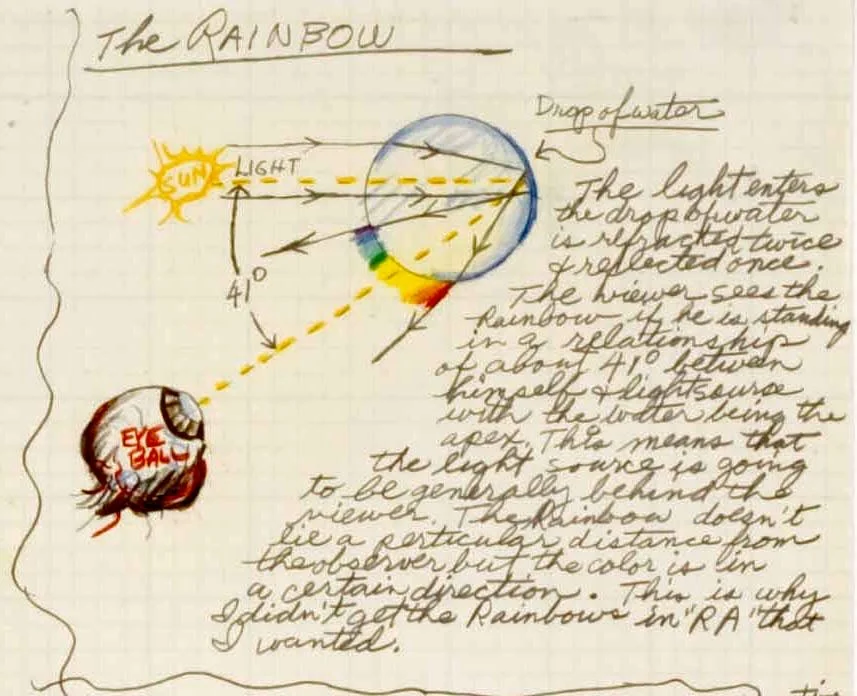 The RAINBOW
Drop of water
SUN
LIGHT
41°
EYE
BALL
The light enters
the drop of water
is refracted twice
& reflected once.
The viewer sees the
Rainbow if he is standing
in a relationship
of about 41° between
himself & light source
with the water being the
apex. This means that
the light source is going
to be generally behind the
viewer. The Rainbow doesn't
lie a perticular distance from
the observer but the color is lin
a certain direction. This is why
I didn't get the Rainbows in "RA" that
I wanted.